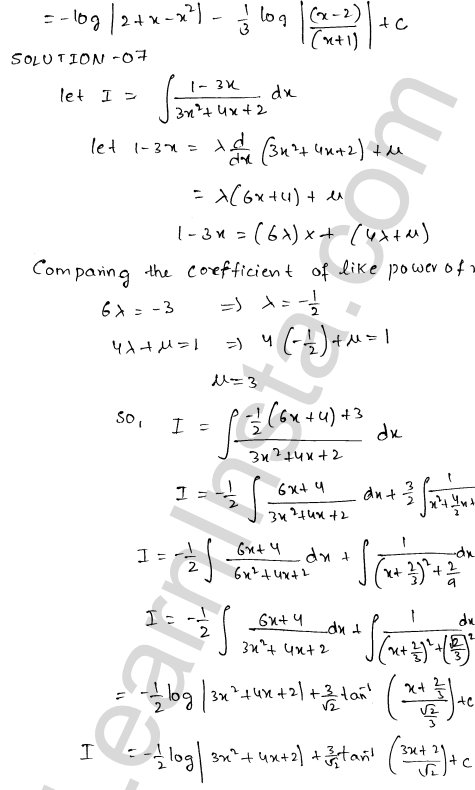 = -log |2+x-x²| - 1/3 log |(x-2)/(x+1)| + c
SOLUTION-07
let I = ∫ (1-3x)/(3x²+4x+2) dx
let 1-3x = λ d/dx (3x²+4x+2) + μ
= λ(6x+4) + μ
1-3x = (6λ)x + (4λ+μ)
Comparing the coefficient of like power of x
6λ = -3 ⇒ λ = -1/2
4λ+μ=1 ⇒ 4(-1/2)+μ=1
μ=3
so, I = ∫ (-1/2(6x+4)+3)/(3x²+4x+2) dx
I = -1/2 ∫ (6x+4)/(3x²+4x+2) dx + 3/2 ∫ 1/(x²+4/3x+
I = -1/2 ∫ (6x+4)/(6x²+4x+2) dx + ∫ 1/((x+2/3)²+2/9) dx
I = -1/2 ∫ (6x+4)/(3x²+4x+2) dx + ∫ 1/((x+2/3)²+(√2/3)²) dx
= -1/2 log |3x²+4x+2| + 3/√2 tan⁻¹ ((x+2/3)/(√2/3)) + c
I = -1/2 log |3x²+4x+2| + 3/√2 tan⁻¹ ((3x+2)/√2) + c
LearnInsta.com